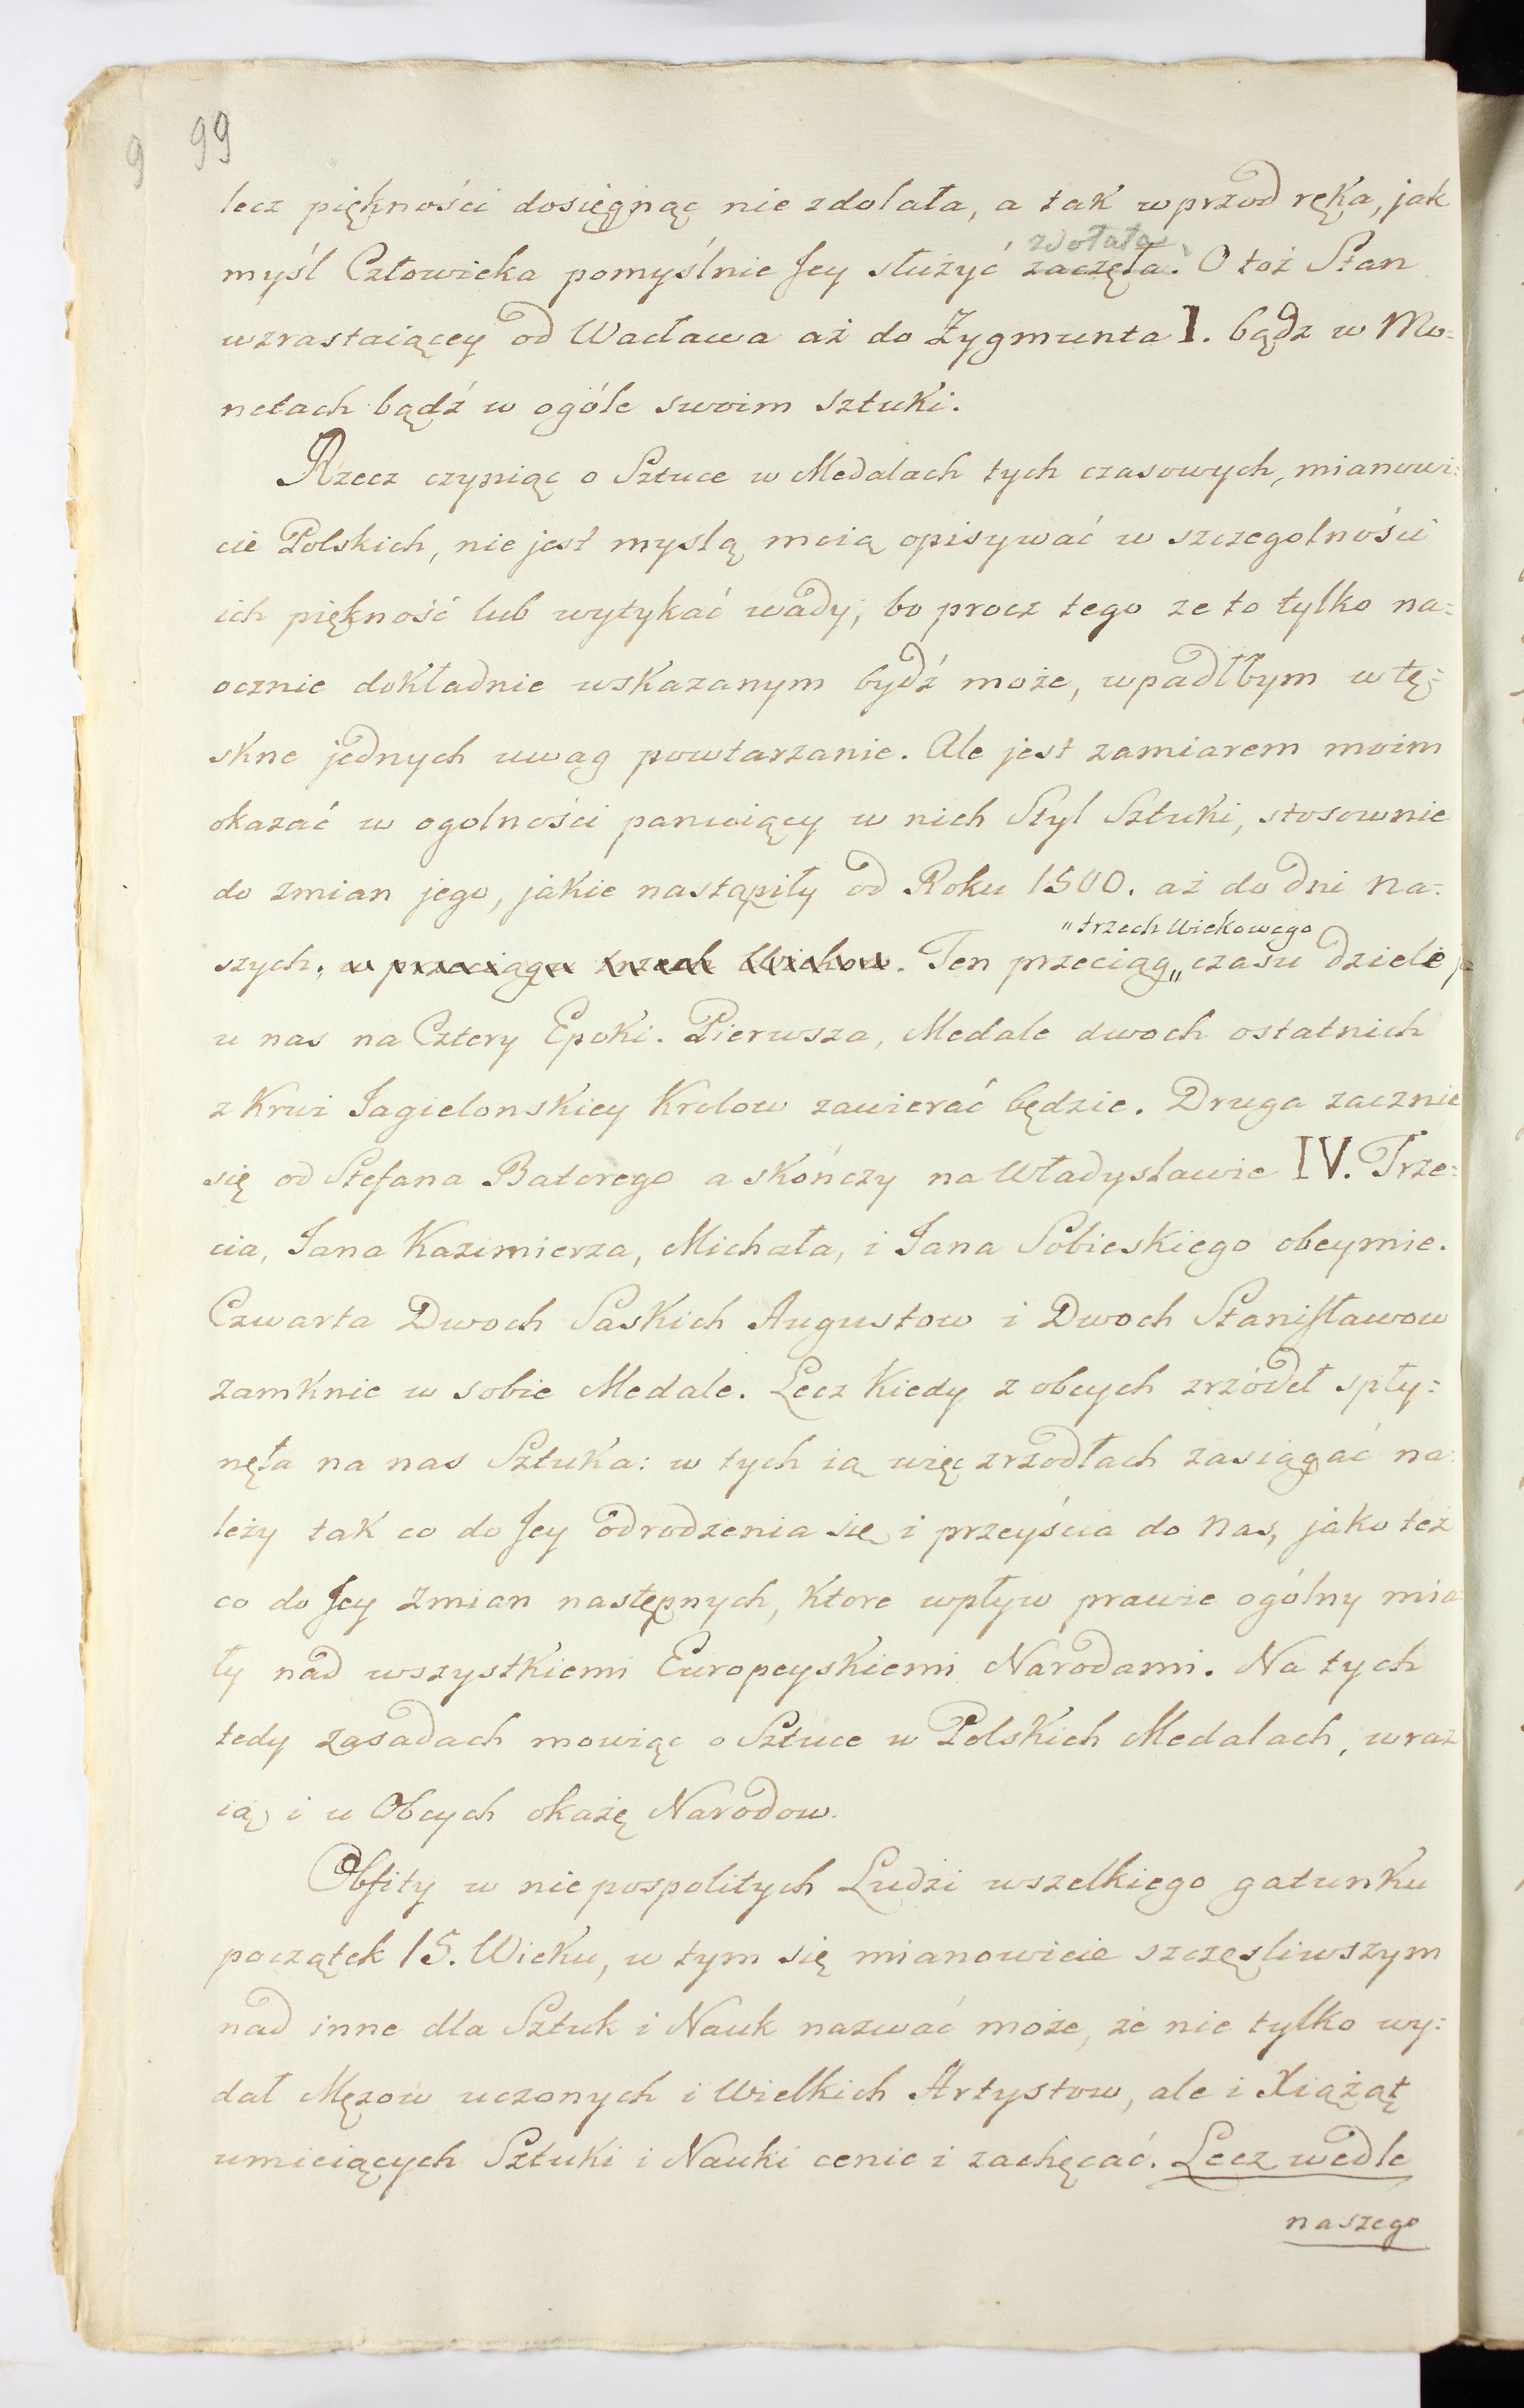 9 99
lecz piękności dosięgnąć nie zdolała, a tak wprzod ręka, jak
zdołała
myśl Człowieka pomyślnie Jey służyć zaczęła. O toż Stan
wzrastaiącey od Wacława aż do Zygmunta I. bądz w Mo=
netach bądź w ogóle swoim sztuki.
Rzecz czyniąc o Sztuce w Medalach tych czasowych, mianowi=
cie Polskich, nie jest myslą moią opisywać w szczegolności
ich piękność lub wytykać wady, bo procz tego ze to tylko na=
ocznie dokładnie wskazanym bydź może, wpadłbym w tę=
skne jednych uwag powtarzanie. Ale jest zamiarem moim
okazać w ogolności panuiący w nich Styl Sztuki, stosownie
do zmian jego, jakie nastąpiły od Roku 1500. aż do dni na=
„trzech Wiekowego
szych, w przeciągu trzech Wiekow. Ten przeciąg„ czasu dzielę
u nas na Cztery Epoki. Pierwsza, Medale dwoch ostatnich
z Krwi Jagielonskiey Krolow zawierać będzie. Druga zacznie
się od Stefana Batorego a skończy na Władysławie IV. Trze=
cia, Jana Kazimierza, Michała, i Jana Sobieskiego obeymie.
Czwarta Dwoch Saskich Augustow i Dwoch Stanisławow
zamknie w sobie Medale. Lecz Kiedy z obcych zrzódeł spły=
nęła na nas Sztuka: w tych ią więc zrzodłach zasiągać na=
leży tak co do Jey odrodzenia się i przeyścia do nas, jako też
co do Jey zmian następnych, ktore wpływ prawie ogólny mia
ły nad wszystkiemi Europeyskiemi Narodami. Na tych
tedy zasadach mowiąc o Sztuce w Polskich Medalach, wraz
ią i u Obcych okażę Narodow.
Obfity w niepospolitych Ludzi wszelkiego gatunku
początek 15. Wieku, w tym się mianowicie szczęsliwszym
nad inne dla Sztuk i Nauk nazwać może, że nie tylko wy=
dał Męzow uczonych i Wielkich Artystow, ale i Xiążąt
umieiących Sztuki i Nauki cenic i zachęcać. Lecz wedle
naszego